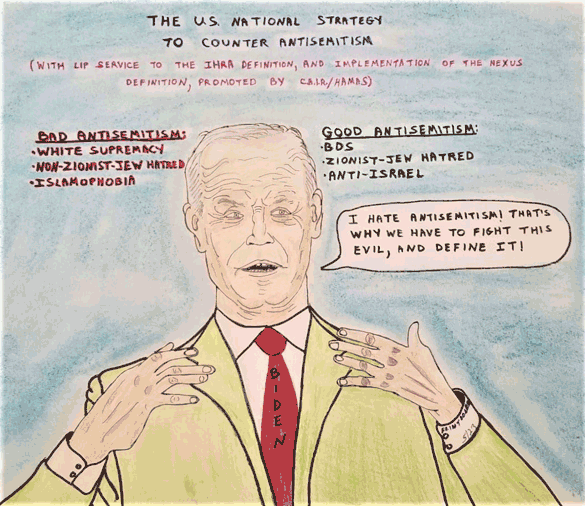 THE U.S. NATIONAL STRATEGY
TO COUNTER ANTISEMITISM
(WITH LIP SERVICE TO THE IHRA DEFINITION, AND IMPLEMENTATION OF THE NEXUS
DEFINITION, PROMOTED BY CAIR/HAMAS)
BAD ANTISEMITISM:
•WHITE SUPREMACY
•NON-ZIONIST-JEW HATRED
•ISLAMOPHOBIA
GOOD ANTISEMITISM:
•BDS
•ZIONIST-JEW HATRED
•ANTI-ISRAEL
I HATE ANTISEMITISM! THAT'S
WHY WE HAVE TO FIGHT THIS
EVIL, AND DEFINE IT!
BIDEN
5/23